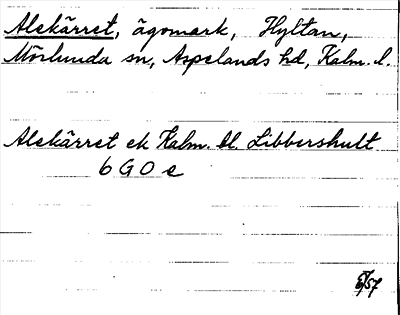 Alekärret, ägomark, Hyltan,
Mörlunda sn, Aspelands hd, Kalm. l.
Alekärret ek Kalm. bl. Libbershult
6 G O e